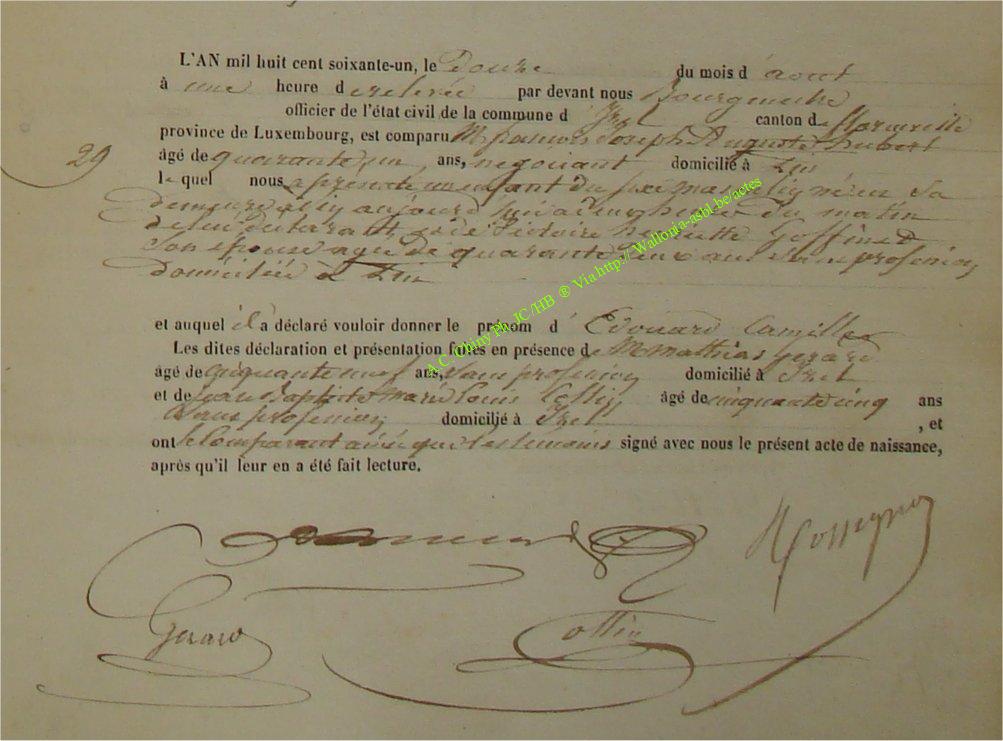 L'AN mil huit cent soixante-un, le Douze du mois d'août
à une heure de relevée par devant nous Bourgmestre
officier de l'état civil de la commune d'Izel canton de Florenville
province de Luxembourg, est comparu Mr françois Joseph Auguste hubert
29
âgé de quarante un ans, négociant domicilié à
le quel nous a présenté un enfant du sexe masculin né en Sa
demeure aujourd'hui a heures du matin
de lui déclarant et de Victoire Goffinet
Son épouse agée de quarante deux ans Sans profession
domiciliée a
et auquel il a déclaré vouloir donner le prénom d'Edouard Camille
Les dites déclaration et présentation faites en présence de Mr Mathias gerard
âgé de cinquante neuf ans, Sans profession domicilié à Izel
et de jean Baptiste marie Louis Collin âgé de cinquante cinq ans
Sans profession domicilié à Izel , et
ont le Comparant ainsi que les temoins signé avec nous le présent acte de naissance,
après qu'il leur en a été fait lecture.
A.C. Chiny Ph. JC/HB ® Via http:// Wallonia-asbl.be/actes
Gerard
Collin